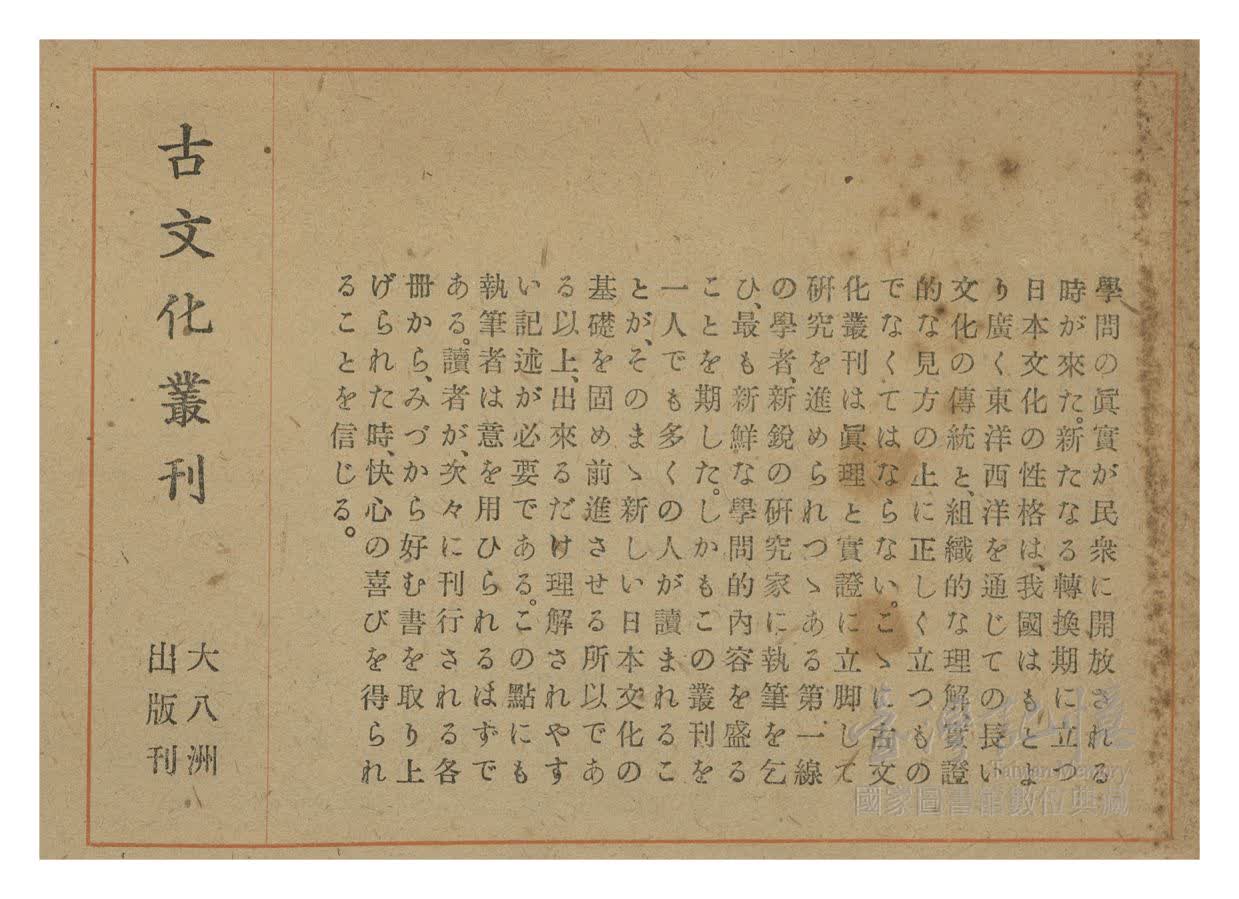 學問の眞實が民衆に開放される
時が來た。新たなる轉換期に立つ
日本文化の性格は、我國はもとよ
り廣く東洋西洋を通じての長い
文化の傳統と、組織的な理解、實證
的な見方の上に正しく立つもの
でなくてはならない。こゝに古文
化叢刊は眞理と實證に立脚して
硏究を進められつゝある第一線
の學者、新銳の硏究家に執筆を乞
ひ、最も新鮮な學問的內容を盛る
ことを期した。しかもこの叢刊を
一人でも多くの人が讀まれるこ
とが、そのまゝ新しい日本文化の
基礎を固め前進させる所以であ
る以上、出來るだけ理解されやす
い記述が必要である。この點にも
執筆者は意を用ひられるはずで
ある。讀者が、次々に刊行される各
冊から、みづから好む書を取り上
げられた時、快心の喜びを得られ
ることを信じる。
古文化叢刊
大八洲
出版刊
臺灣記憶
Taiwan Memory
國家圖書館數位典藏